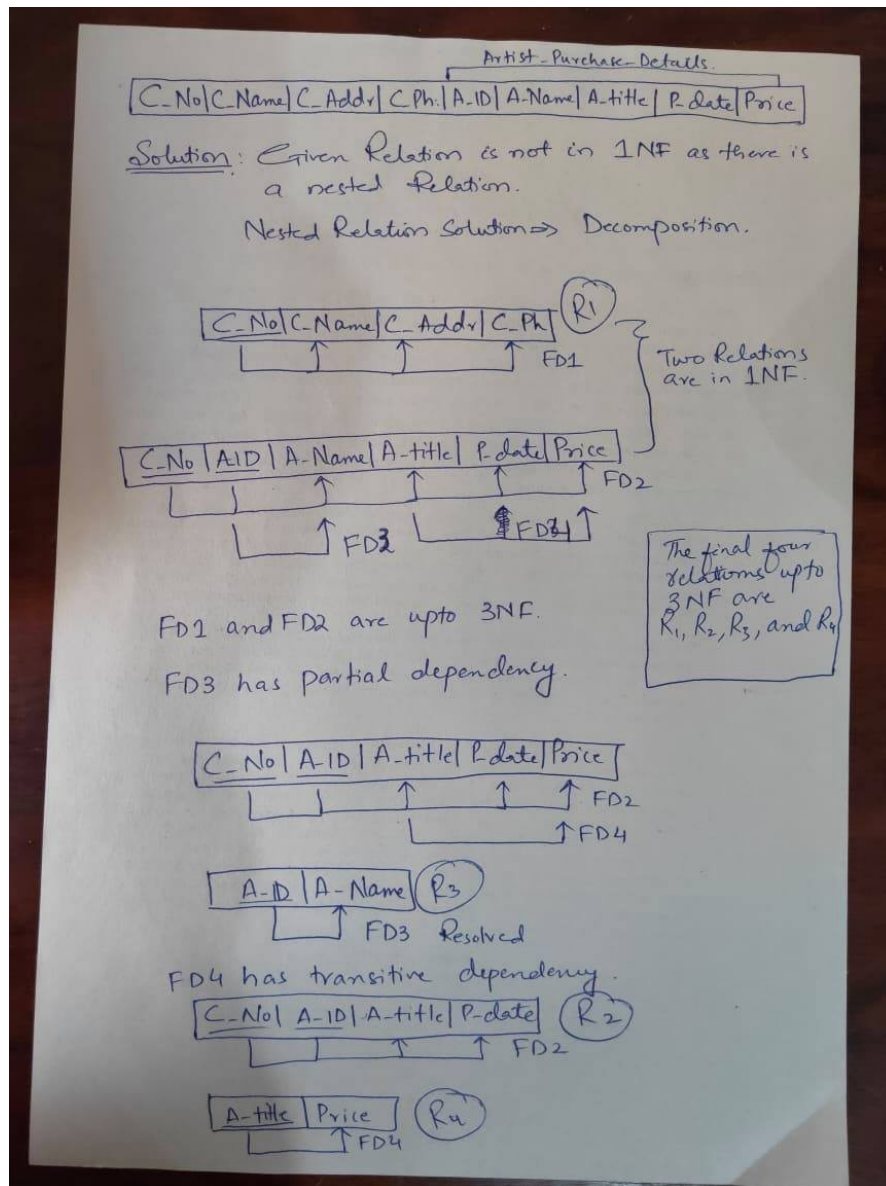 Artist-Purchase-Details.
C_No|C_Name|C_Addr|C_Ph.|A_ID|A-Name|A-title|P-date|Price
Solution: Given Relation is not in 1NF as there is
a nested Relation.
Nested Relation Solution => Decomposition.
C_No|C_Name|C_Addr|C_Ph R1
FD1
Two Relations
are in 1NF.
C_No|A-ID|A-Name|A-title|P-date|Price
FD2
FD3 FD4
The final four
relations upto
3NF are
R1, R2, R3, and R4
FD1 and FD2 are upto 3NF.
FD3 has partial dependency.
C_No|A-ID|A-title|P-date|Price
FD2
FD4
A-ID|A-Name R3
FD3 Resolved
FD4 has transitive dependency.
C_No|A-ID|A-title|P-date R2
FD2
A-title|Price R4
FD4